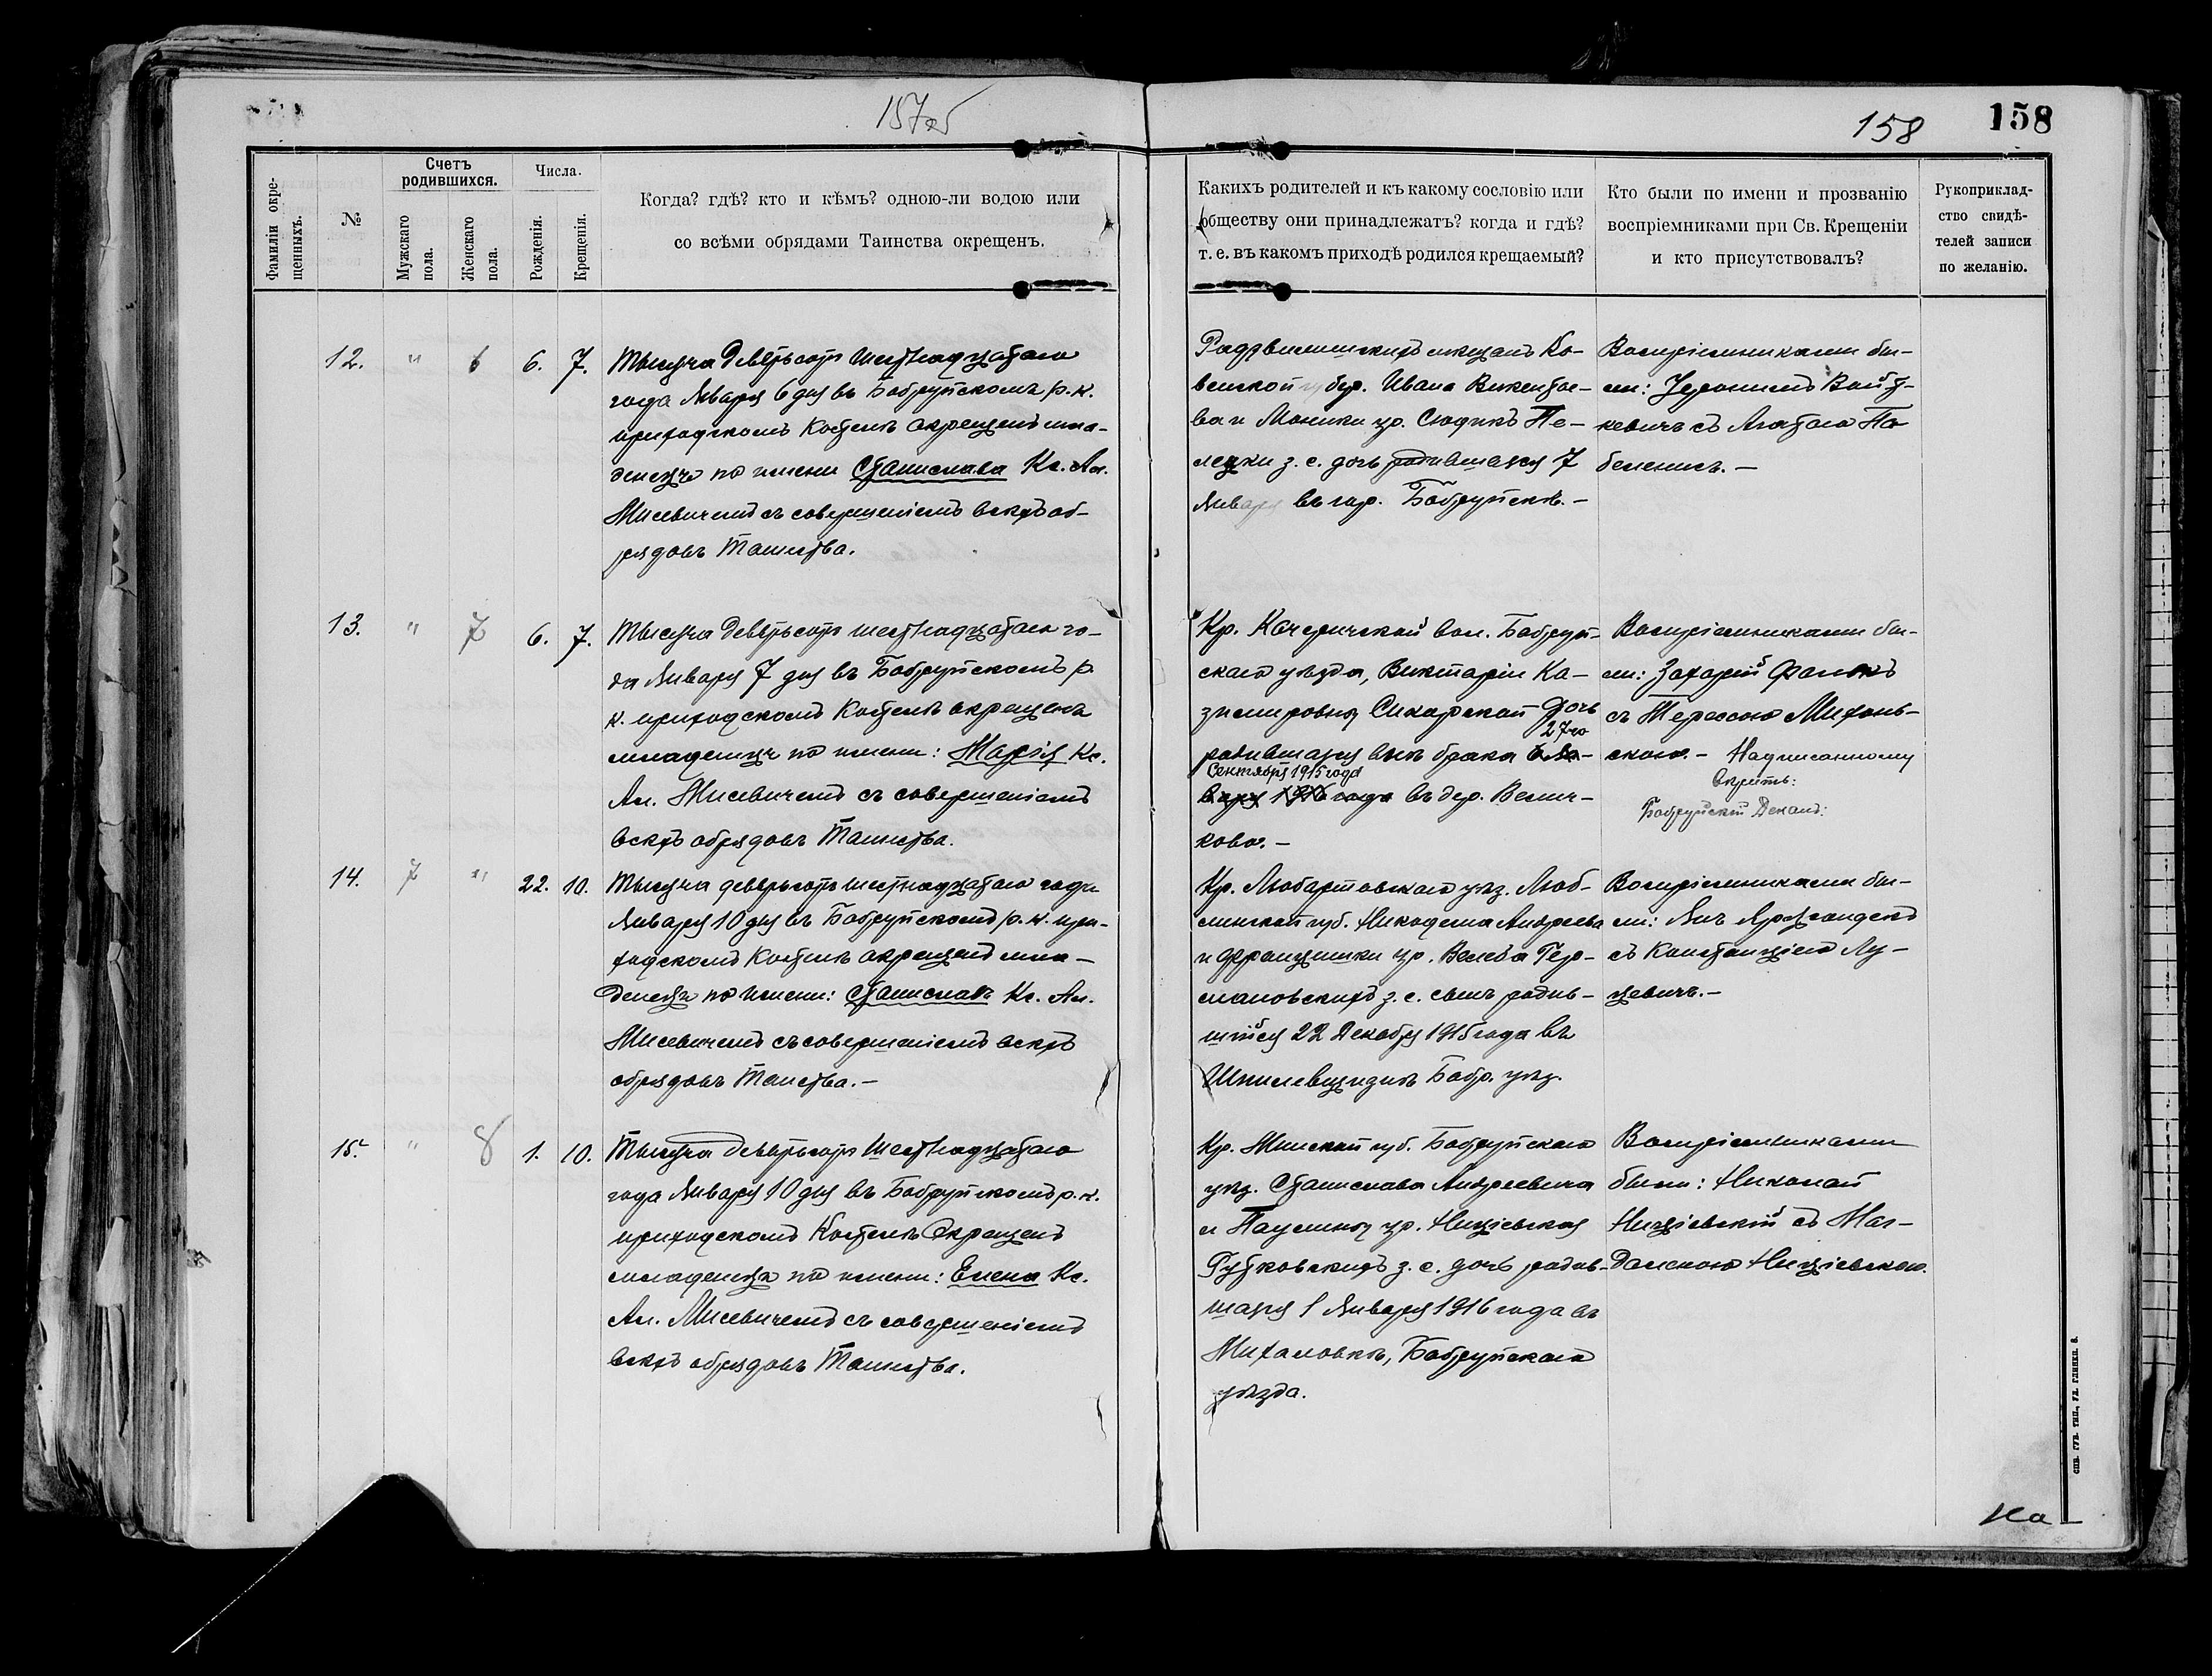 157об
158
158
Фамиліи окре-
щенныхъ.
№
Счетъ
родившихся.
Мужскаго
пола.
Женскаго
пола.
Числа.
Рожденія.
Крещенія.
Когда? гдѣ? кто и кѣмъ? одною-ли водою или
со всѣми обрядами Таинства окрещенъ.
Какихъ родителей и къ какому сословію или
обществу они принадлежатъ? когда и гдѣ?
т. е. въ какомъ приходѣ родился крещаемый?
Кто были по имени и прозванію
воспріемниками при Св. Крещеніи
и кто присутствовалъ?
Рукоприклад-
ство свидѣ-
телей записи
по желанію.
12. " 6 6. 7.
Тысяча девятьсотъ шестнадцатаго
года Января 6 дня въ Бобруйскомъ р. к.
приходскомъ Костелѣ окрещенъ мла-
денецъ по имени Станислава Кс. Ал.
Мисевичемъ съ совершеніемъ всѣхъ об-
рядовъ Таинства.
Радзвилишскихъ мещанъ Ко-
венской губер. Ивана Викентье-
ва и Моники ур. Сюдикъ Пе-
лецки з. с. дочь родившаяся 7
Января въ гор. Бобруйскѣ. -
Воспріемниками бы-
ли: Іеронимъ Войт-
кевичъ съ Агатою По-
белешисъ. -
13. " 7 6. 7.
Тысяча девятьсотъ шестнадцатаго го-
да Января 7 дня въ Бобруйскомъ р.
к. приходскомъ Костелѣ окрещенъ
младенецъ по имени: Марія Кс.
Ал. Мисевичемъ съ совершеніемъ
всѣхъ обрядовъ Таинства.
Кр. Качеричской вол. Бобруй-
скаго уѣзда, Викторіи Ка-
зимировны Сикорской дочь
27го
родившаяся внѣ брака 6 Ян-
Сентября 1915 года
варя 1916 года въ дер. Велич-
ково. -
Воспріемниками бы-
ли: Захарій
съ Терезою Михонь-
скою. - Надписанному
вѣрить:
Бобруйскій Деканъ:
14. 7 " 22. 10.
Тысяча девятьсотъ шестнадцатаго года
Января 10 дня въ Бобруйскомъ р. к. при-
ходскомъ Костелѣ окрещенъ мла-
денецъ по имени: Станиславъ Кс. Ал.
Мисевичемъ съ совершеніемъ всѣхъ
обрядовъ Таинства. -
Кр. Любартовскаго уѣз. Люб-
линской губ. Никодема Андреева
и Францишки ур. Велеба Гер-
мановскихъ з. с. сынъ родив-
шійся 22 Декабря 1915 года въ
Шпилевщизнѣ Бобр. уѣз.
Воспріемниками бы-
ли: Янъ
съ Констанціею Лу-
цевичъ. -
15. " 8 1. 10.
Тысяча девятьсотъ шестнадцатаго
года Января 10 дня въ Бобруйскомъ р. к.
приходскомъ Костелѣ окрещенъ
младенецъ по имени: Елена Кс.
Ал. Мисевичемъ съ совершеніемъ
всѣхъ обрядовъ Таинства.
Кр. Минской губ. Бобруйскаго
уѣз. Станислава Андреевича
и Паулины ур. Ниціевская
Рутковскихъ з. с. дочь родив-
шаяся 1 Января 1916 года въ
Михаловкѣ, Бобруйскаго
уѣзда.
Воспріемниками
были: Николай
Ниціевскій съ Маг-
даленою Ницiевскою.
На
СПБ. ГУБ. ТИП., УЛ. ГЛИНКИ, 8.